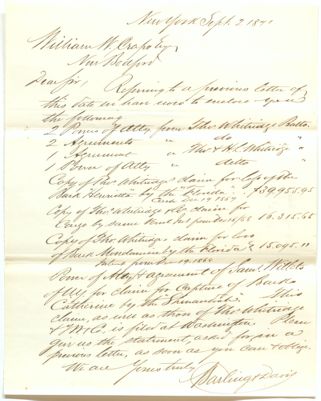 New York Sept. 2 187
William W. Crapo Esq,
New Bedford
Dear Sir, Referring to a previous letter of
this date we have now to enclose you
the following
2 Powers of Atty from Thos Whitridge
2 Agreements " do
1 Agreement " Thos & H L Whitridge
1 Power of Atty " ditto
Copy of Thos Whitridge's claim for loss of the
Bark Henrietta by the "Florida" $39455.95
Copy of Thos Whitridge & Co claim for
Cargo by same
Copy of Thos Whitridge's claim for loss
of Bark Mondamin by the Florida
Power of Atty & agreement of Saml Willets
for claim for Capture of Bark
Catherine by the Shenandoah. This
claim, as well as those of Thos Whitridge
& Co. is filed at Washington. Please
give us the statement, asked for in a
previous letter, as soon as you can & oblige
We are Yours truly
Darling & Davis